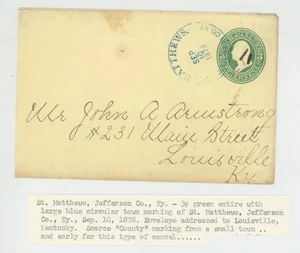 ST. MATTHEWS,
CO. KY.
SEP
10
Mr John A Armstrong
#231 Main Street
Louisville
Ky.
St. Matthews, Jefferson Co., Ky. - 3¢ green entire with
large blue circular town marking of St. Matthews, Jefferson
Co., Ky., Sep. 10, 1878. Envelope addressed to Louisville,
Kentucky. Scarce "County" marking from a small town ..
and early for this type of cancel......